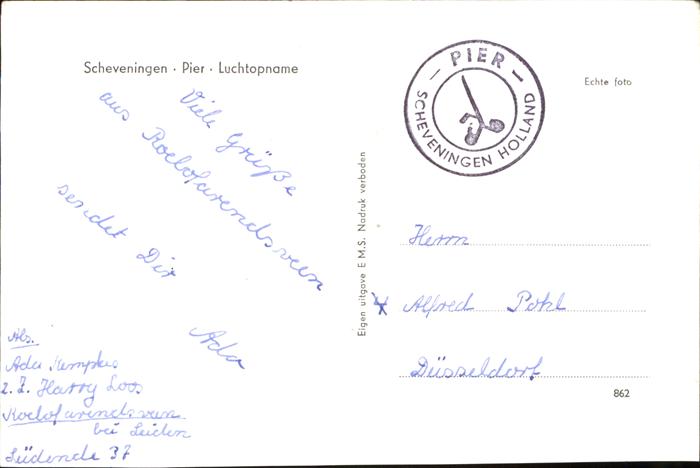 Scheveningen · Pier · Luchtopname
Viele Grüße
aus Roelofarendsveen
sendet Dir
Ada
Abs.
Ada Kempkes
z. Z. Harry Loos
Roelofarendsveen
bei Leiden
Südende 37
Eigen uitgave E.M.S. Nadruk verboden
— PIER —
SCHEVENINGEN HOLLAND
Echte foto
Herrn
Alfred Pohl
Düsseldorf
862